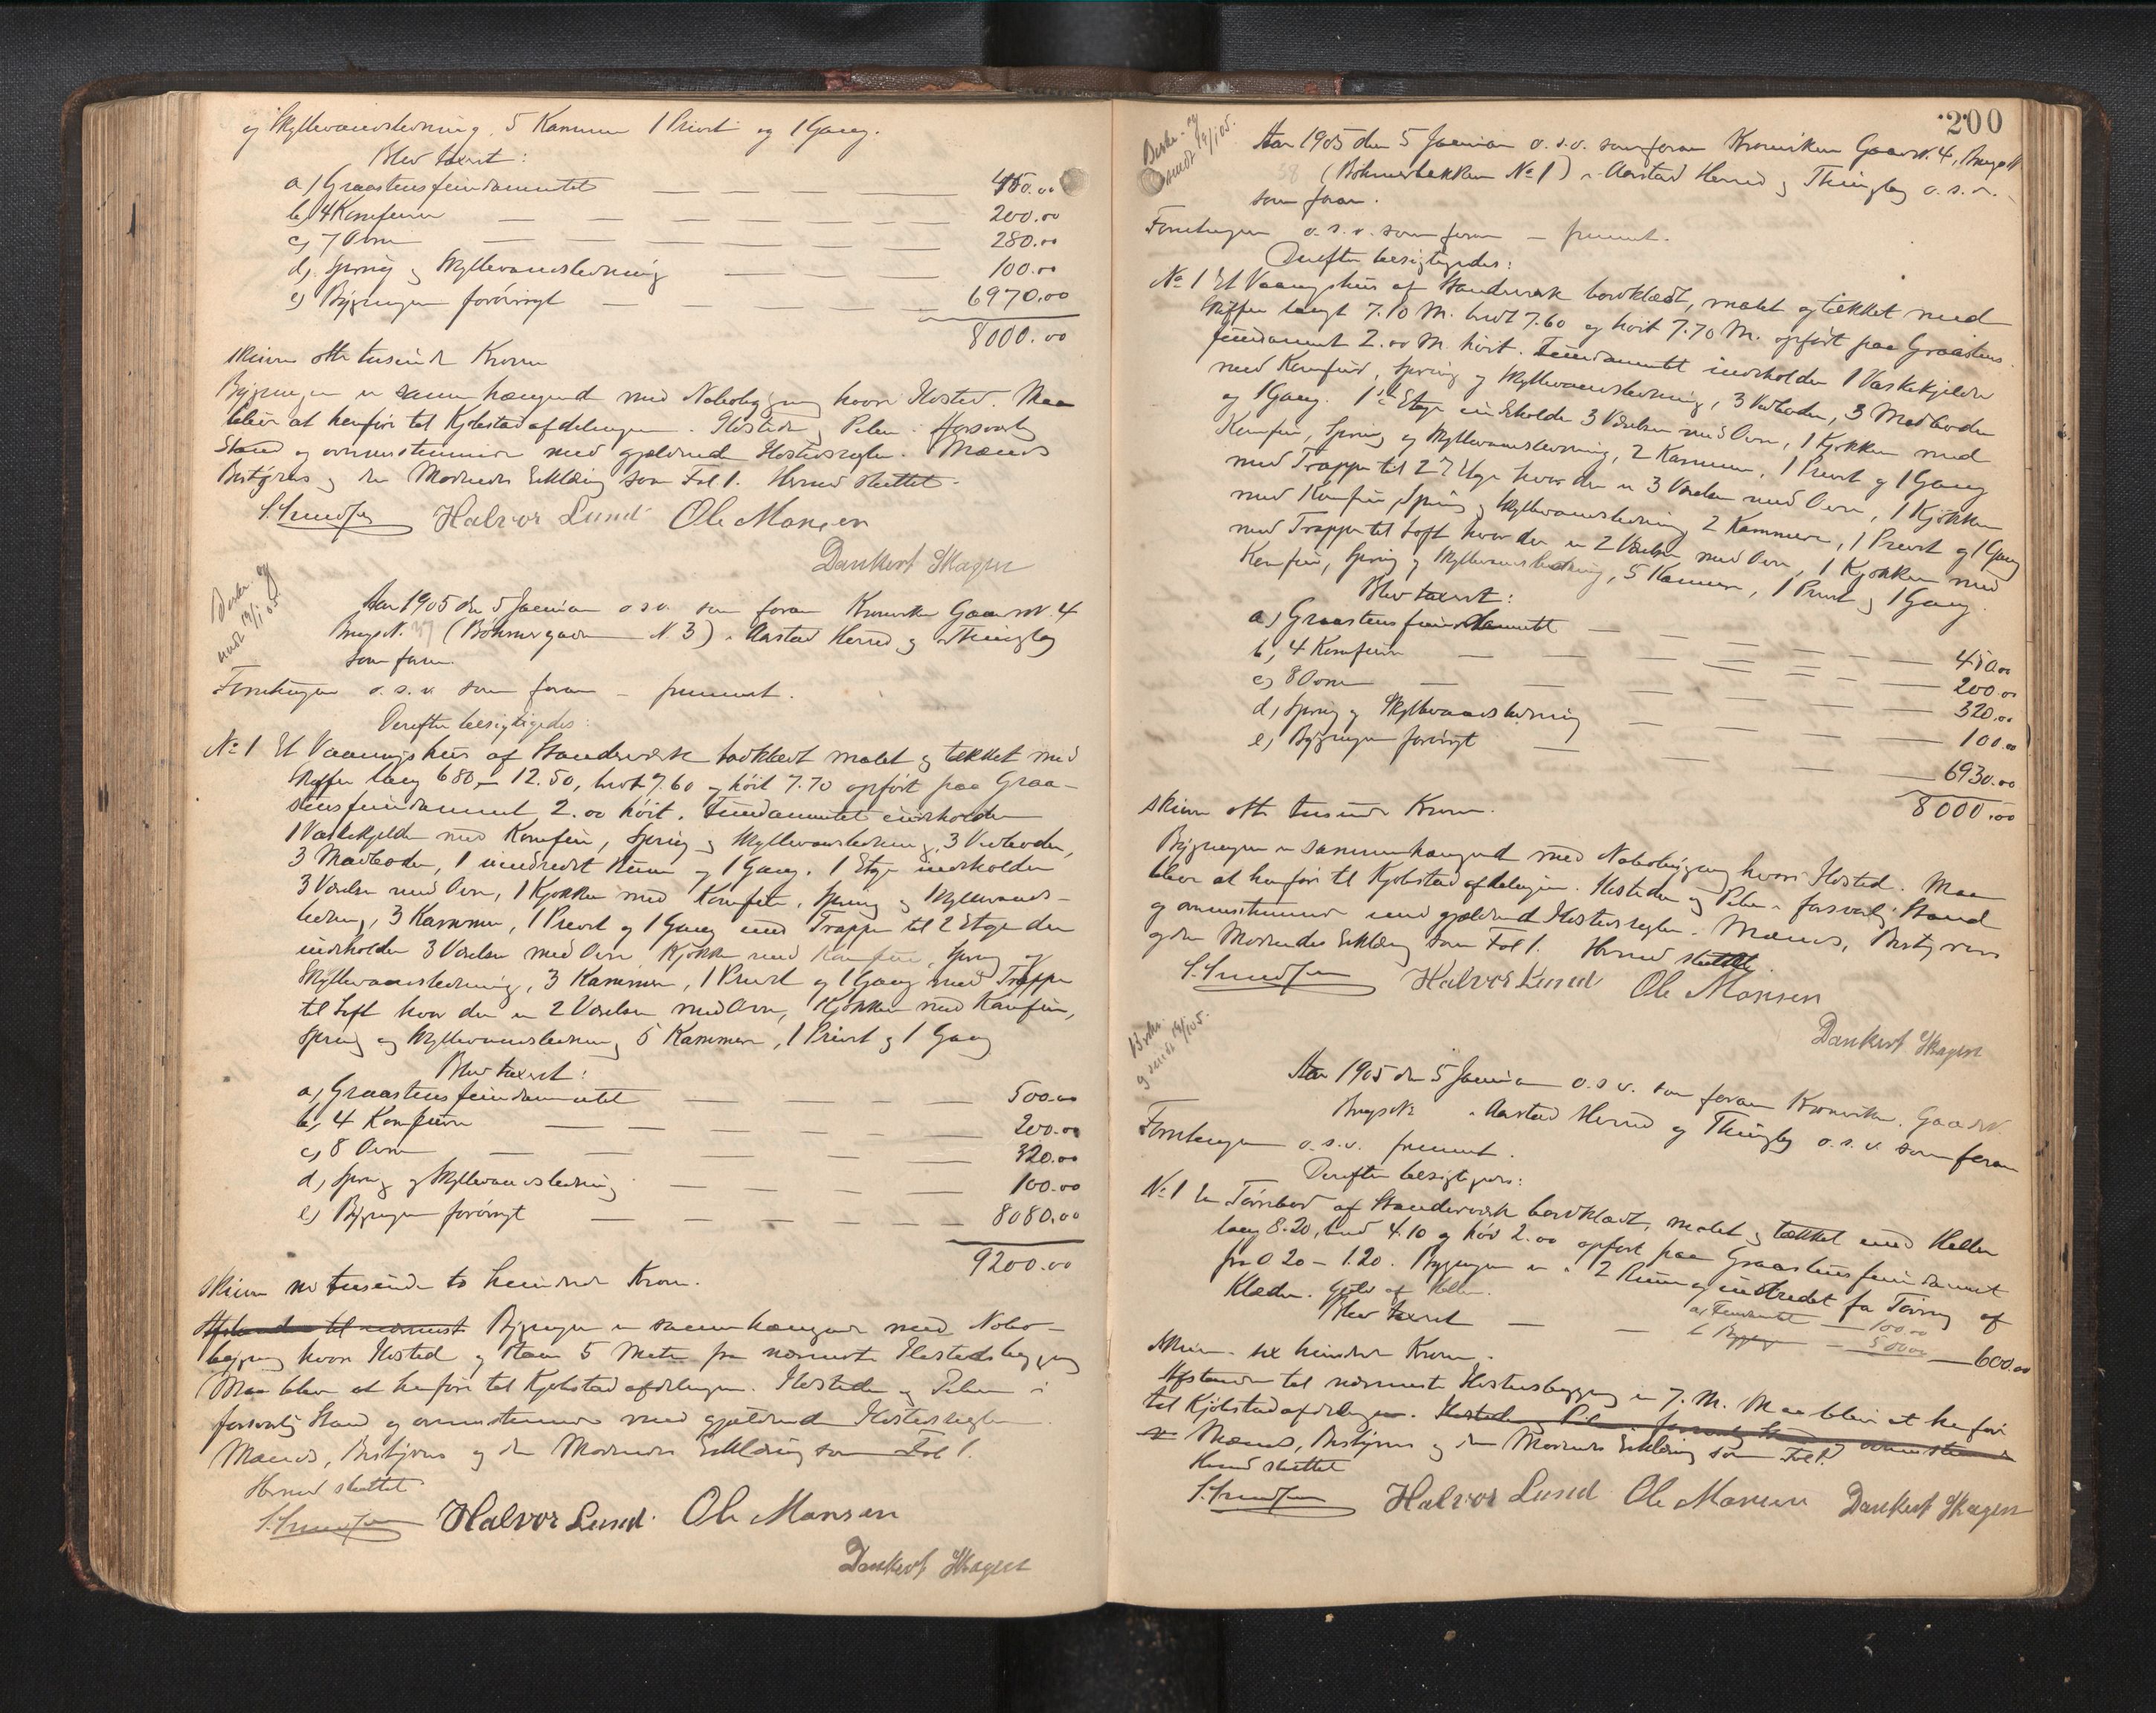 og Skyllevandsledning, 5 Kammer 1 Privet og 1 Gang.
Blev taxert:
a) Graastensfundamentet — — — 450.00
b) 4 Komfurer — — — 200.00
c) 7 Ovne — — — 280.00
d) Spring og Skyllevandsledning — — — 100.00
e) Bygningen forøvrigt — — — 6970.00
8000.00
skriver otte tusinde Kroner
Bygningen er sammenhængende med Nabobygning hvori Ildsted. Maa
blive at henføre til Kjøbstadafdelingen. Ildsteder og Piber i forsvarlig
Stand og overensstemmende med gjældende Ildstedsregler. Mænds
Bestyrers og den Mødendes Erklæring som Fol 1. Hermed sluttet.
Halvor Lund Ole Monsen
Dankert Skagen
Beskr. og
sendt 19/1 05
Aar 1905 den 5 Januar o.s.v. som foran Kronviken Gaardsn. 4
Brugsn. 37 (Böhmergaden N. 3) i Aarstad Herred og Thinglag
som foran.
Forretningen o.s.v. som foran – fremmet.
Derefter besigtigedes:
No 1 Et Vaaningshus af Standværk bordklædt malet og tækket med
Skiffer lang 6.80 – 12.50, bredt 7.60 og høit 7.70 opført paa Graa-
stensfundament 2.00 høit. Fundamentet indeholder
1 Vaskekjelder med Komfur, Spring og Skyllevandsledning, 3 Vedboder,
3 Madboder, 1 indredet Rum og 1 Gang. 1 Etage indeholder
3 Værelser med Ovne, 1 Kjøkken med Komfur, Spring og Skyllevands-
ledning, 3 Kammer, 1 Privet og 1 Gang med Trappe til 2 Etage der
indeholder 3 Værelser med Ovne, Kjøkken med Komfur, Spring og
Skyllevandsledning, 3 Kammer, 1 Privet og 1 Gang med Trappe
til Loft hvor der er 2 Værelser med Ovne, 1 Kjøkken med Komfur,
Spring og Skyllevandsledning 5 Kammer, 1 Privet og 1 Gang
Blev taxert:
a) Graastensfundamentet — — — 500.00
b) 4 Komfurer — — — 200.00
c) 8 Ovne — — — 320.00
d) Spring og Skyllevandsledning — — — 100.00
e) Bygningen forøvrigt — — — 8080.00
9200.00
skriver ni tusinde to hundrede Kroner.
Afstanden til nærmest Bygningen er sammenhængende med Nabo-
bygning hvori Ildsted og staar 5 Meter fra nærmeste Ildstedsbygning
Maa blive at henføre til Kjøbstadafdelingen. Ildsteder og Piber i
forsvarlig Stand og overensstemmende med gjældende Ildstedsregler.
Mænds, Bestyrers og den Mødendes Erklæring som Fol 1.
Hermed sluttet
Halvor Lund. Ole Monsen
Dankert Skagen
200
Beskr. og
sendt 19/1 05.
Aar 1905 den 5 Januar o.s.v. som foran Kronviken Gaardsn. 4, Brugsn
38 (Böhmerbakken No 1) i Aarstad Herred og Thinglag o.s.v.
som foran.
Forretningen o.s.v. som foran – fremmet.
Derefter besigtigedes:
No 1 Et Vaaningshus af Standværk bordklædt, malet og tækket med
Skiffer langt 7.10 M. bredt 7.60 og høit 7.70 M. opført paa Graastens
fundament 2.00 M. høit. Fundamentet indeholder 1 Vaskekjelder
med Komfur, Spring og Skyllevandsledning, 3 Vedboder, 3 Madboder
og 1 Gang. 1ste Etage indeholder 3 Værelser med Ovne, 1 Kjøkken med
Komfur, Spring og Skyllevandsledning, 2 Kammer, 1 Privet og 1 Gang
med Trappe til 2den Etage hvor der er 3 Værelser med Ovne, 1 Kjøkken
med Komfur, Spring og Skyllevandsledning 2 Kammere, 1 Privet og 1 Gang
med Trappe til Loft hvor der er 2 Værelser med Ovne, 1 Kjøkken med
Komfur, Spring og Skyllevandsledning, 5 Kammer, 1 Privet og 1 Gang.
Blev taxert:
a) Graastensfundamentet — — — 450.00
b) 4 Komfurer — — — 200.00
c) 8 Ovne — — — 320.00
d) Spring og Skyllevandsledning — — — 100.00
e) Bygningen forøvrigt — — — 6930.00
8000.00
skriver otte tusinde Kroner.
Bygningen er sammenhængende med Nabobygning hvori Ildsted. Maa
blive at henføre til Kjøbstadafdelingen. Ildsteder og Piber i forsvarlig Stand
og overensstemmende med gjældende Ildstedsregler. Mænds, Bestyrers
og den Mødendes Erklæring som Fol 1. Hermed sluttet.
Halvor Lund Ole Monsen
Dankert Skagen
Beskr.
og sendt 19/1 05.
Aar 1905 den 5 Januar o.s.v. som foran Kronviken. Gaardsn.
Brugsn. i Aarstad Herred og Thinglag o.s.v. som foran
Forretningen o.s.v. fremmet.
Derefter besigtigedes:
No 1 En Tørrebod af Standværk bordklædt, malet og tækket med Heller
lang 8.20, bred 4.10 og høi 2.00 opført paa Graastensfundament
fra 0.20 – 1.20. Bygningen er i 2 Rum og indredet for Tørring af
Klæder. Gulv af Heller.
Blev taxert — — a) Fundamentet — 100.00
b Bygning — 500.00 — 600.00
skriver sex hundrede Kroner.
Afstanden til nærmeste Ildstedsbygning er 7. M. Maa blive at henføre
til Kjøbstadafdelingen. Ildsteder og Piber i forsvarlig Stand og overensstemmende
Mænds, Bestyrers og den Mødendes Erklæring som Fol 1.
Hermed sluttet
Halvor Lund Ole Monsen Dankert Skagen